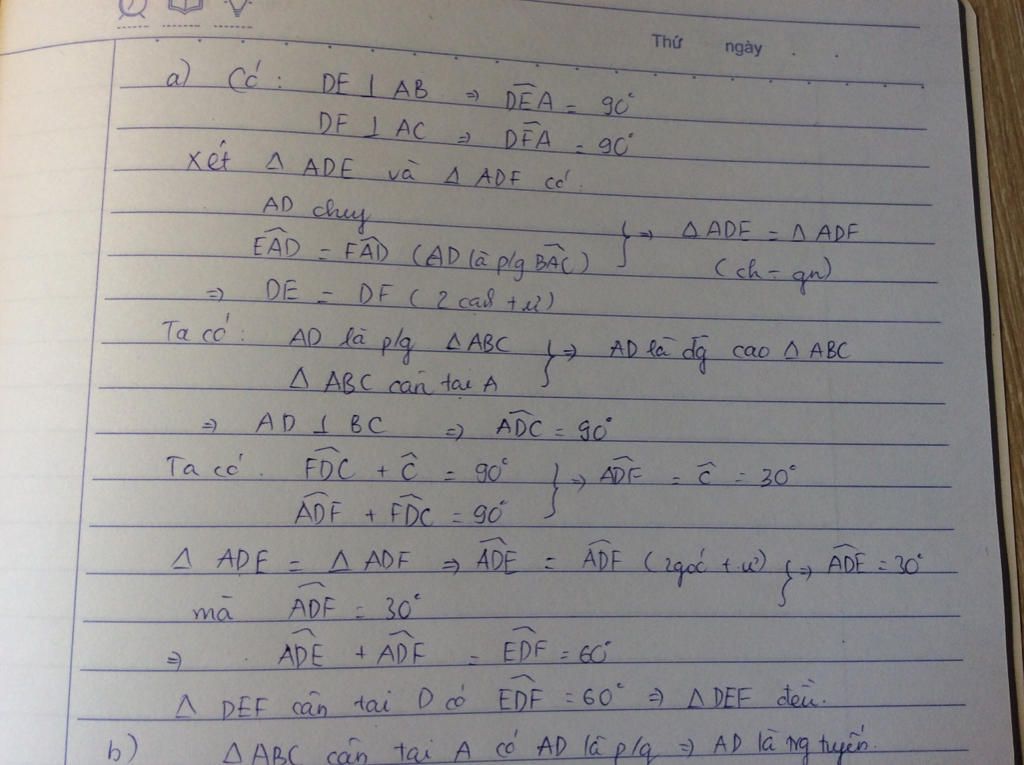 Thứ ngày
a) Có : DE ⊥ AB ⇒ D̂EA = 90°
DF ⊥ AC ⇒ D̂FA = 90°
Xét Δ ADE và Δ ADF có :
AD chung
ÊAD = F̂AD (AD là p/g B̂AC) } ⇒ Δ ADE = Δ ADF
(ch - gn)
⇒ DE = DF ( 2 cạnh t.ư)
Ta có : AD là p/g Δ ABC } ⇒ AD là đg cao Δ ABC
Δ ABC cân tại A
⇒ AD ⊥ BC ⇒ ÂDC = 90°
Ta có . F̂DC + Ĉ = 90° } ⇒ ÂDF = Ĉ = 30°
ÂDF + F̂DC = 90°
Δ ADE = Δ ADF ⇒ ÂDE = ÂDF (2 góc t.ư) } ⇒ ÂDE = 30°
mà ÂDF = 30°
⇒ ÂDE + ÂDF = ÊDF = 60°
Δ DEF cân tại D có ÊDF = 60° ⇒ Δ DEF đều.
b) Δ ABC cân tại A có AD là p/g ⇒ AD là tuyến.